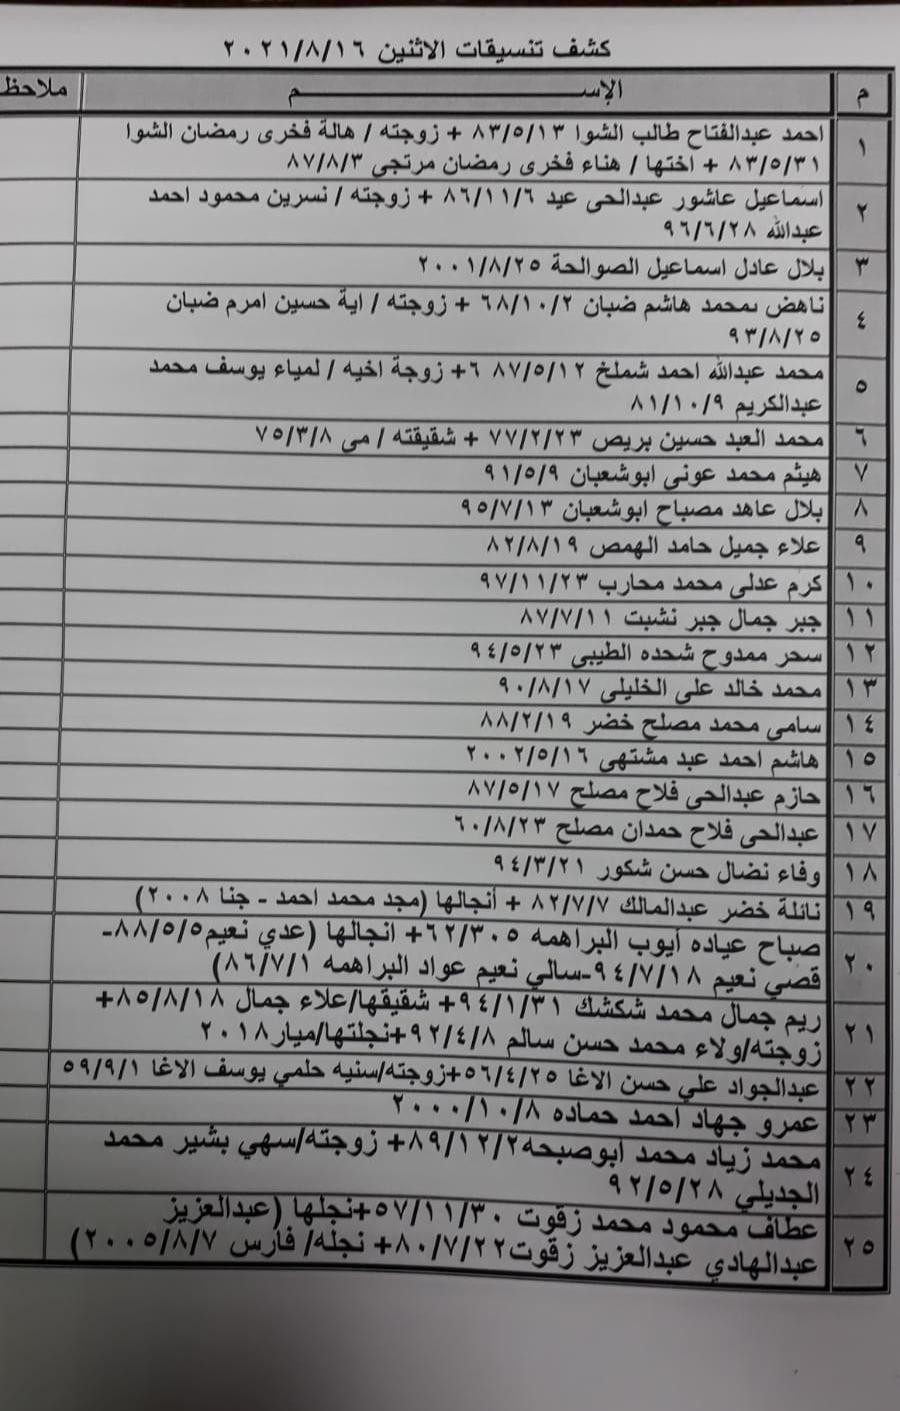 كشف تنسيقات الاثنين ٢٠٢١/٨/١٦
م الإســـــــم ملاحظ
١ احمد عبدالفتاح طالب الشوا ٨٣/٥/١٣ + زوجته / هالة فخرى رمضان الشوا
٨٣/٥/٣١ + اختها / هناء فخرى رمضان مرتجى ٨٧/٨/٣
٢ اسماعيل عاشور عبدالحى عيد ٨٦/١١/٦ + زوجته / نسرين محمود احمد
عبدالله ٩٦/٦/٢٨
٣ بلال عادل اسماعيل الصوالحة ٢٠٠١/٨/٢٥
٤ ناهض محمد هاشم ضبان ٦٨/١٠/٢ + زوجته / اية حسين امرم ضبان
٩٣/٨/٢٥
٥ محمد عبدالله احمد شملخ ٨٧/٥/١٢ ٦+ زوجة اخيه / لمياء يوسف محمد
عبدالكريم ٨١/١٠/٩
٦ محمد العبد حسين بريص ٧٧/٢/٢٣ + شقيقته / مى ٧٥/٣/٨
٧ هيثم محمد عونى ابوشعبان ٩١/٥/٩
٨ بلال عاهد مصباح ابوشعبان ٩٥/٧/١٣
٩ علاء جميل حامد الهمص ٨٢/٨/١٩
١٠ كرم عدلى محمد محارب ٩٧/١١/٢٣
١١ جبر جمال جبر نشبت ٨٧/٧/١١
١٢ سحر ممدوح شحده الطيبى ٩٤/٥/٢٣
١٣ محمد خالد على الخليلى ٩٠/٨/١٧
١٤ سامى محمد مصلح خضر ٨٨/٢/١٩
١٥ هاشم احمد عبد مشتهى ٢٠٠٢/٥/١٦
١٦ حازم عبدالحى فلاح مصلح ٨٧/٥/١٧
١٧ عبدالحى فلاح حمدان مصلح ٦٠/٨/٢٣
١٨ وفاء نضال حسن شكور ٩٤/٣/٢١
١٩ نائلة خضر عبدالمالك ٨٢/٧/٧ + أنجالها (مجد محمد احمد - جنا ٢٠٠٨)
٢٠ صباح عياده أيوب البراهمه ٦٢/٣٠٥+ انجالها (عدي نعيم٨٨/٥/٥-
قصي نعيم ٩٤/٧/١٨-سالي نعيم عواد البراهمه ٨٦/٧/١)
٢١ ريم جمال محمد شكشك ٩٤/١/٣١+ شقيقها/علاء جمال ٨٥/٨/١٨+
زوجته/ولاء محمد حسن سالم ٩٢/٤/٨+نجلتها/ميار٢٠١٨
٢٢ عبدالجواد علي حسن الاغا ٥٦/٤/٢٥+زوجته/سنيه حلمي يوسف الاغا ٥٩/٩/١
٢٣ عمرو جهاد احمد حماده ٢٠٠٠/١٠/٨
٢٤ محمد زياد محمد ابوصبحه٨٩/١٢/٢+ زوجته/سهي بشير محمد
الجديلي ٩٢/٥/٢٨
٢٥ عطاف محمود محمد زقوت ٥٧/١١/٣٠+نجلها (عبدالعزيز
عبدالهادي عبدالعزيز زقوت٨٠/٧/٢٢+ نجله/ فارس ٢٠٠٥/٨/٧)